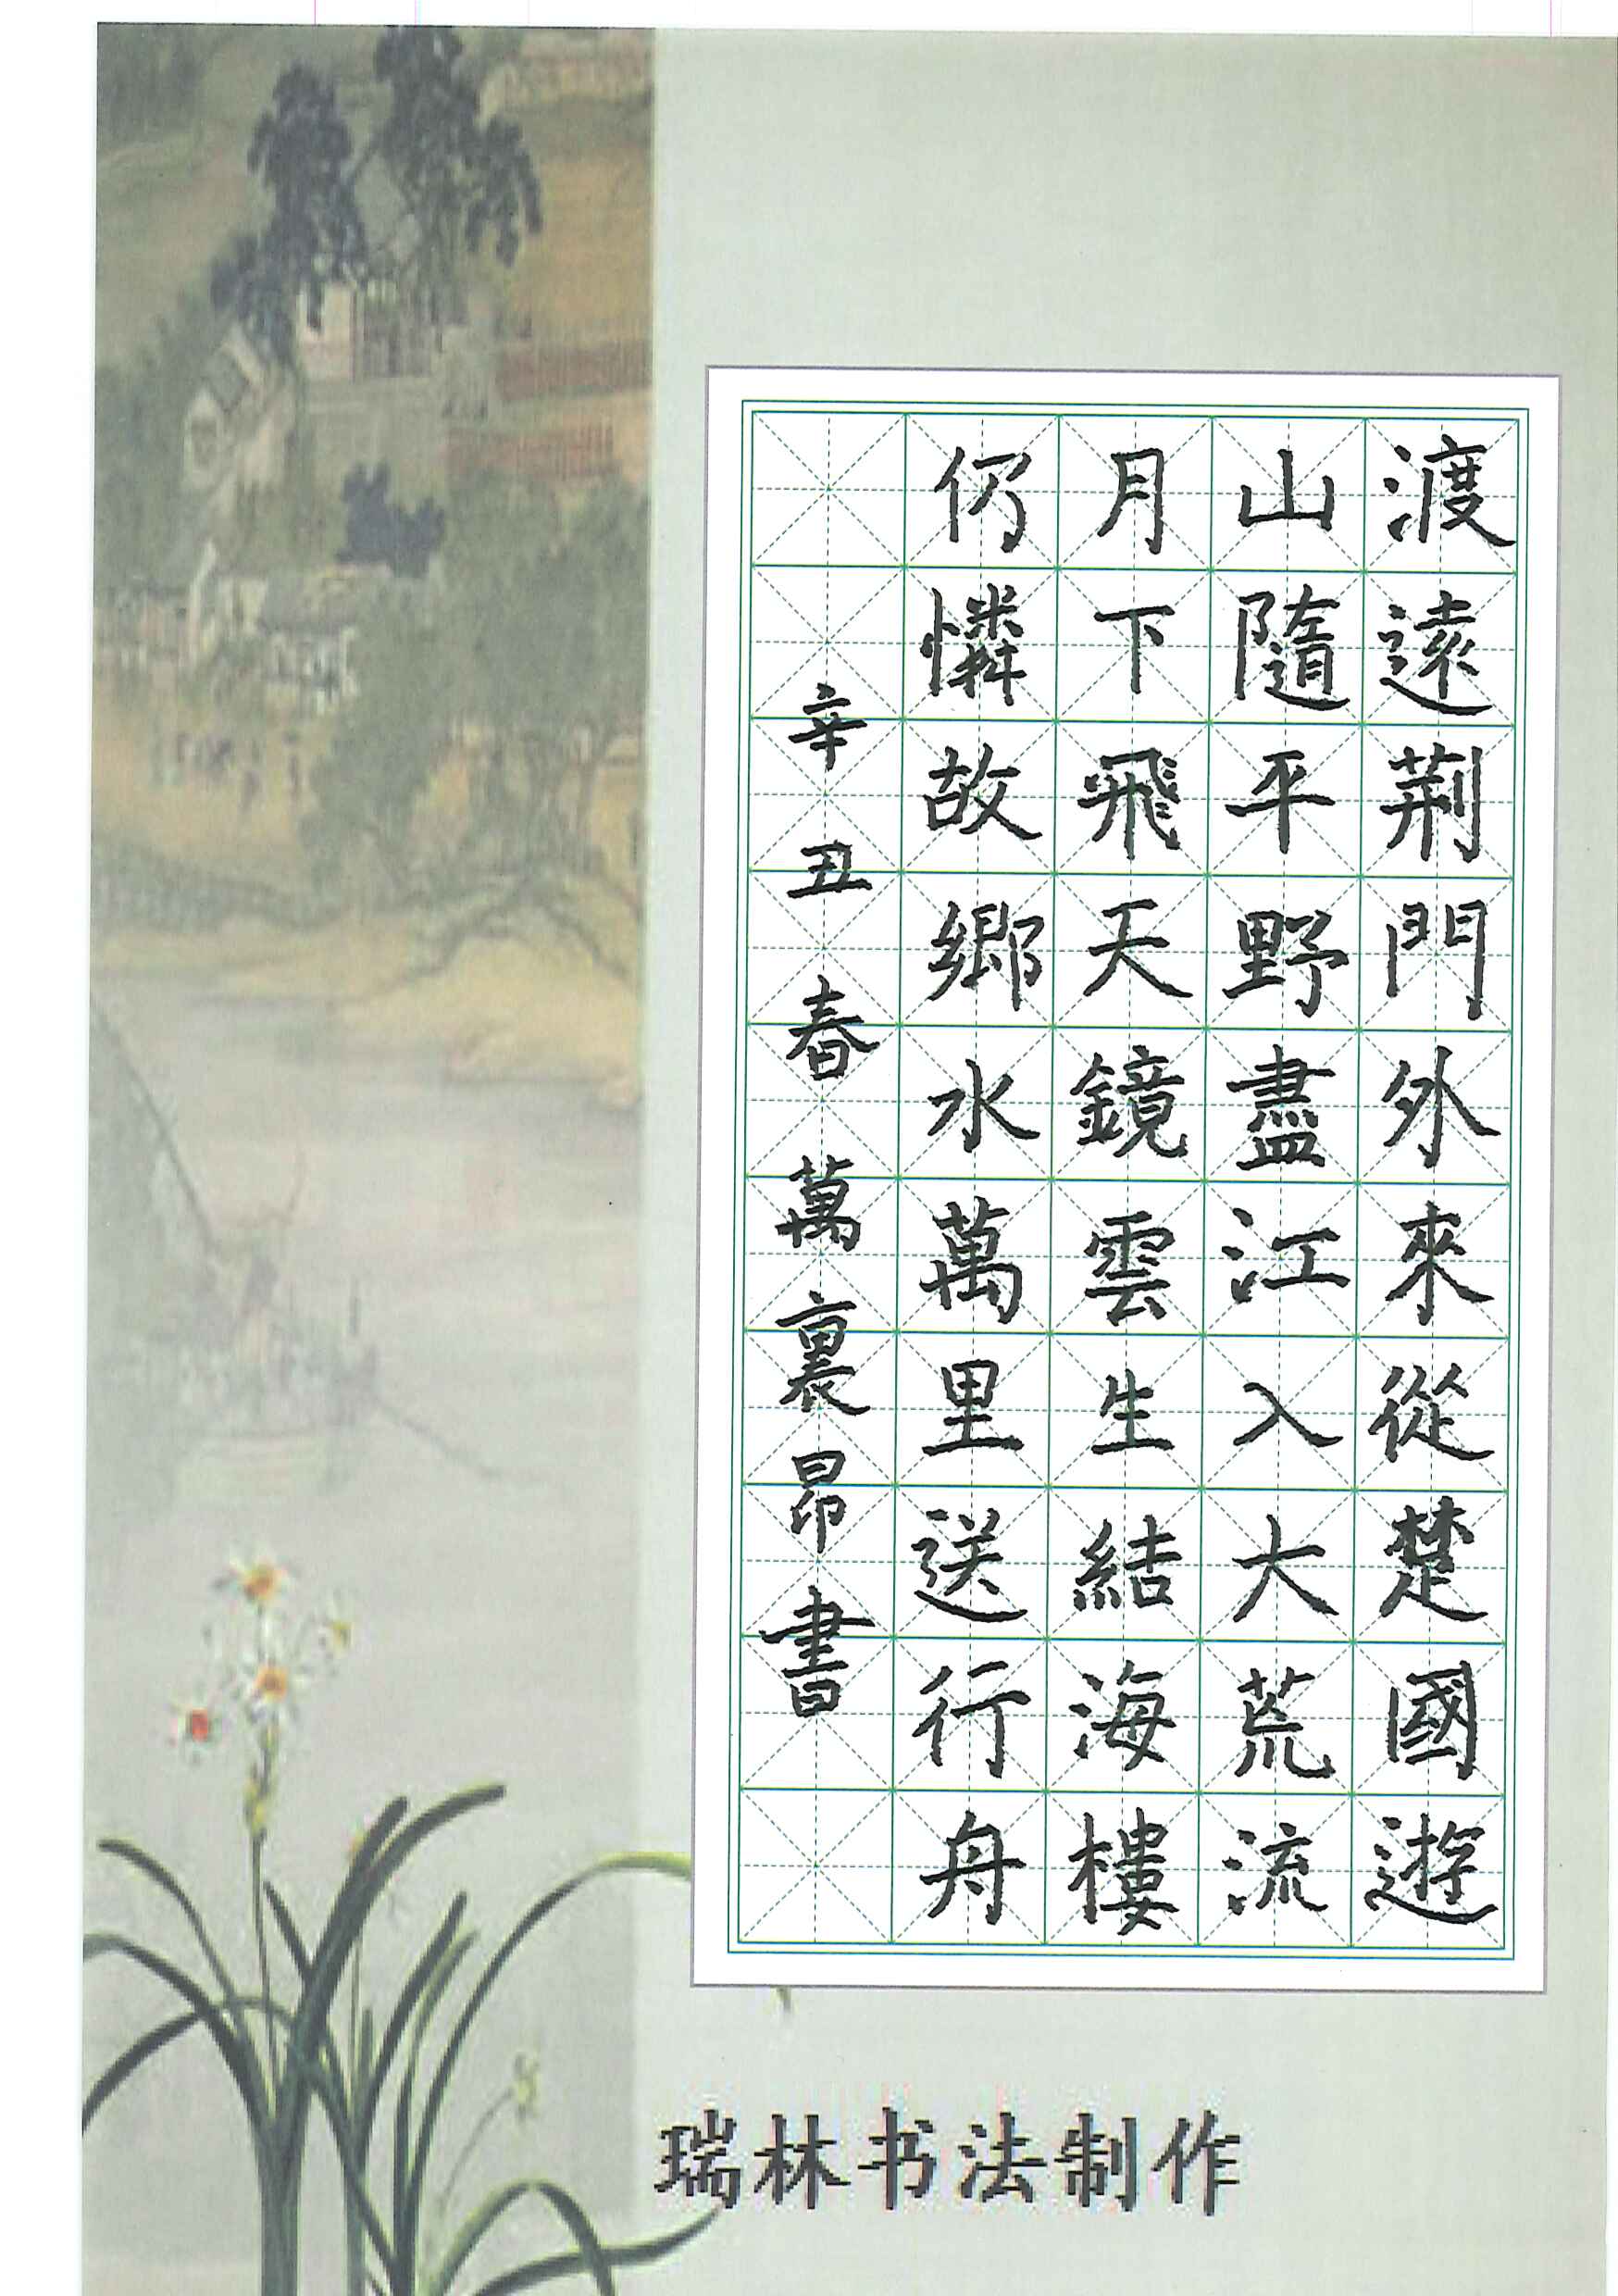 渡遠荆門外來從楚國遊
山隨平野盡江入大荒流
月下飛天鏡雲生結海樓
仍憐故鄉水萬里送行舟
辛丑春萬裏昂書
瑞林书法制作